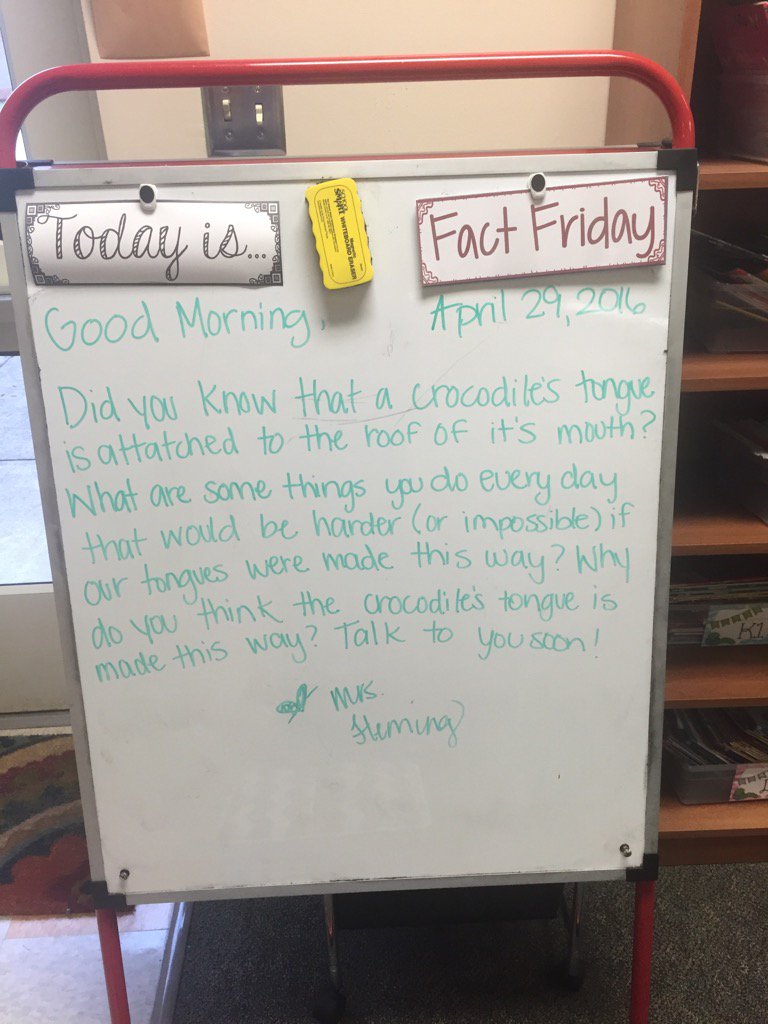 Today is...
SMART WHITEBOARD ERASER
Fact Friday
Good Morning,
April 29, 2016
Did you know that a crocodile's tongue
is attatched to the roof of it's mouth?
What are some things you do every day
that would be harder (or impossible) if
our tongues were made this way? Why
do you think the crocodile's tongue is
made this way? Talk to you soon!
Mrs.
Fleming